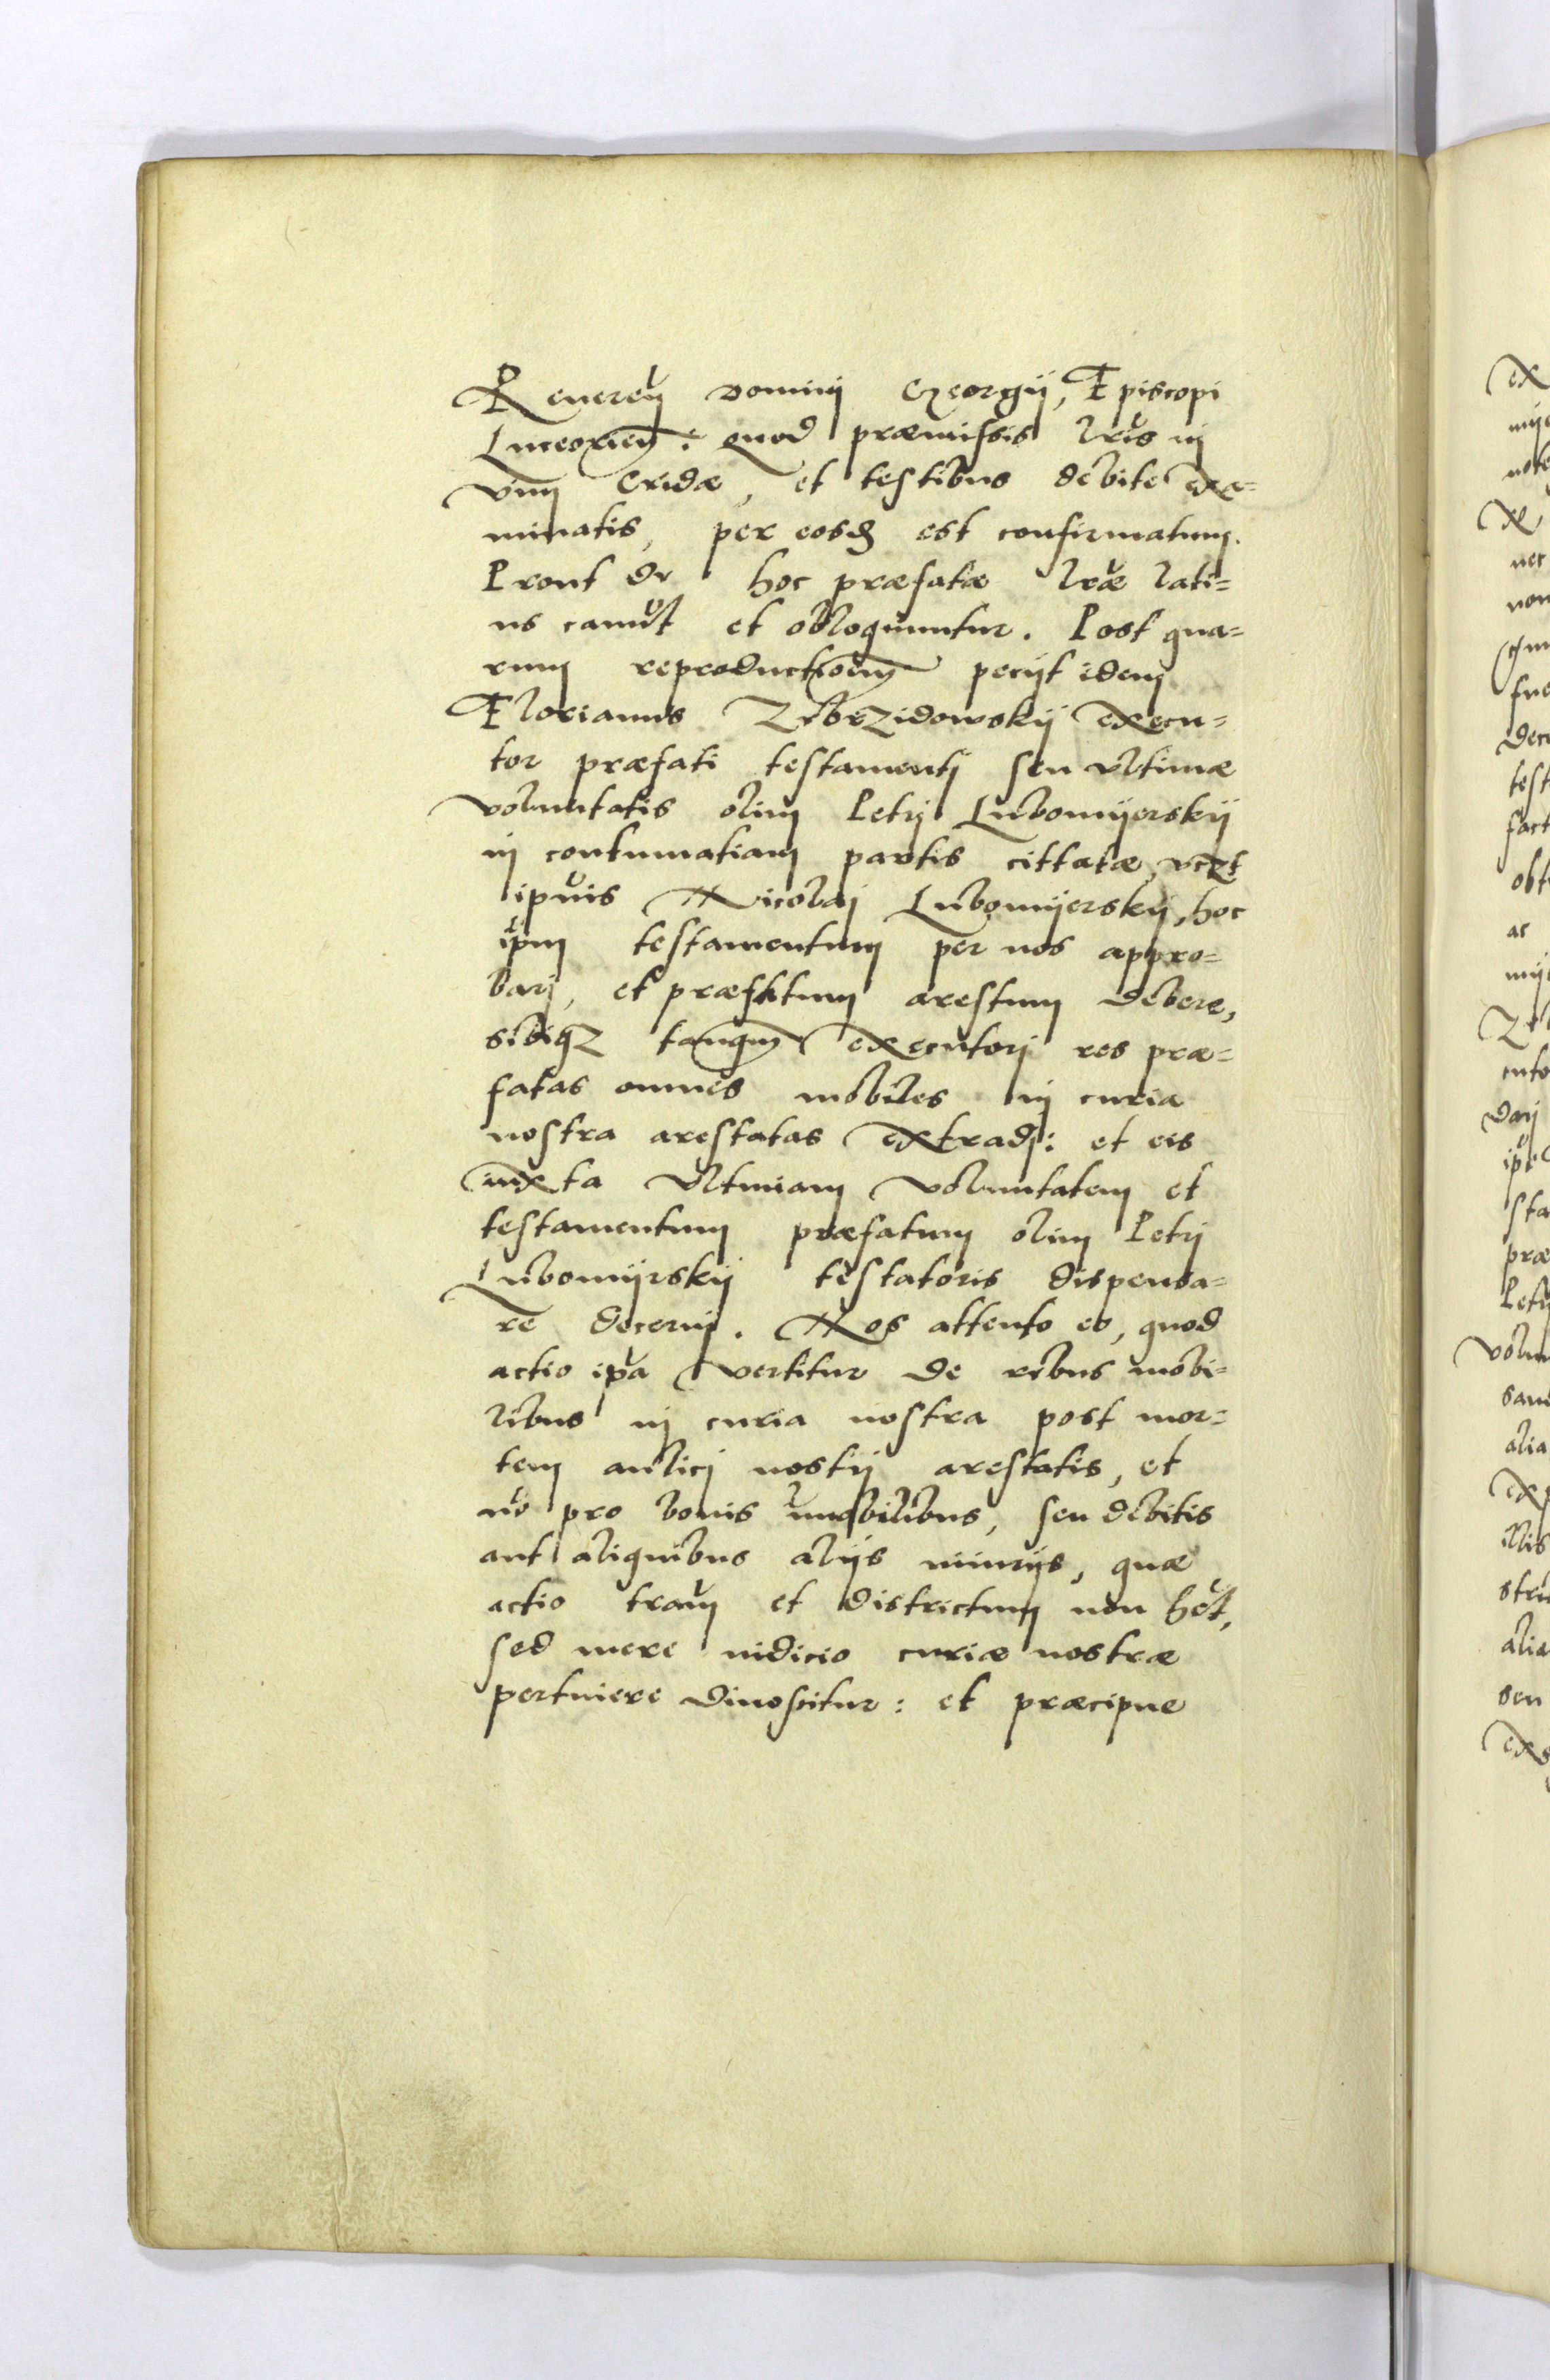 Reueren̄ Domini Georgij, Episcopi
Luceorien̄: quod præmissis lr̄is in
vim Cridæ, et testibus debite exa=
minatis, per eosd̄ est confirmatum.
Prout de hoc præfatæ lr̄æ lati=
us canūt et obloquuntur. Post qua=
rum reproductioem̄ pecijt idem
Florianus Zebrzidowskij execu=
tor præfati testamentj seu vltimæ
voluntatis olim Petrj Lubomijerskij
in contumatiam partis cittatæ, vczt
ip̄ius Nicolaj Lubomijerskij, hoc
ip̄m testamentum per nos appro=
barj, et præfatum arestum debere,
sibiqz tanqm̄ executorj res præ=
fatas omnes mobiles in curia
nostra arestatas extradj: et eis
iuxta vltimam voluntatem et
testamentum præfatum olim Petrj
Lubomijrskij testatoris dispensa=
re decernj. Nos attento eo, quod
actio ip̄a vertitur de rebus mobi=
libus in curia nostra post mor=
tem aulicj nostrj arestatis, et
nō pro bonis īmobilibus, seu debitis
aut aliquibus alijs iniurijs, quæ
actio terram̄ et districtum non hēt,
sed mere iudicio curiæ nostræ
pertinere dinoscitur: et præcipue